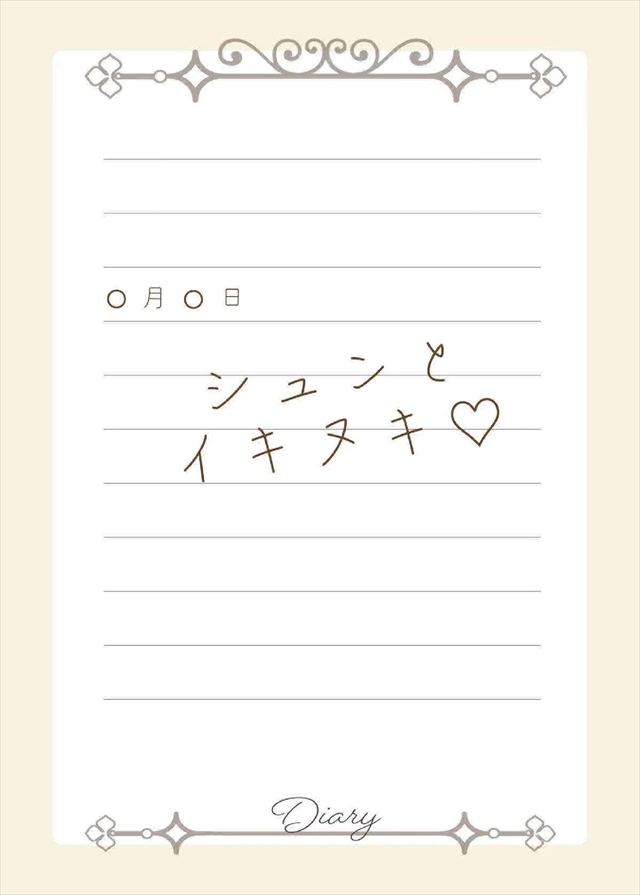 〇月〇日
シュンと
イキヌキ♡
Diary